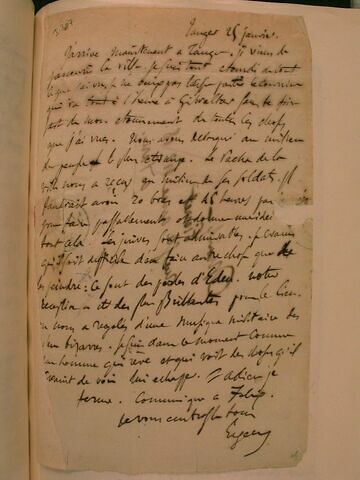 Tanger 25 janvier.
J'arrive maintenant a Tanger. Je viens de
parcourir la ville. Je suis tout etourdi de tout
ce que j'ai vu. Je ne veux pas laisser partir le courrier
qui va tout a l'heure à Gibraltar sans te faire
part de mon etonnement de toutes les choses
que j'ai vues. Nous avons debarqué au milieu
du peuple le plus etrange. Le Pacha de la
ville nous a reçus au milieu de ses soldats. Il
faudrait avoir 20 bras et 48 heures par
jour pour faire passablement et donner une idée de
tout cela. Les juives sont admirables. Je crains
qu'il soit difficile d'en faire autre chose que de
les peindre: ce sont des perles d'Eden. Notre
reception a été des plus Brillantes pour le lieu.
on nous a regalés d'une musique militaire des
plus bizarres. Je suis dans ce moment comme
un homme qui rêve et qui voit des choses qu'il
craint de voir lui echapper. adieu je
ferme. Communique a
je vous embrasse tous
Eugene